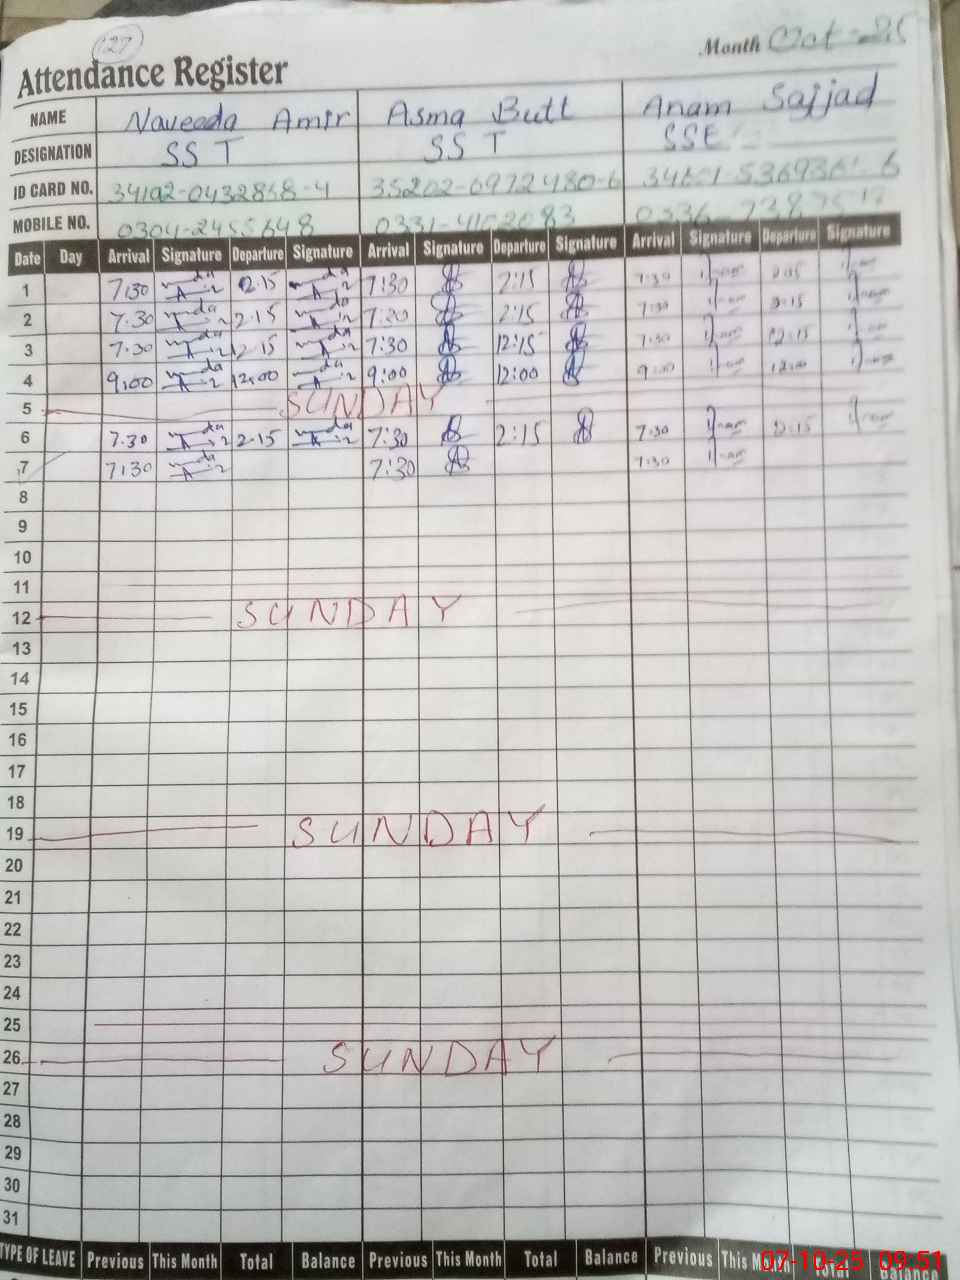 127
Month Oct-25
Attendance Register
NAME Naveeda Amir Asma Butt Anam Sajjad
DESIGNATION SST SST SSE
ID CARD NO. 34192-0432848-4 35202-6972480-6
MOBILE NO. 0304-2455648
Date Day Arrival Signature Departure Signature Arrival Signature Departure Signature Arrival Signature Departure Signature
1 7:30 2:15 7:30 2:15 7:30 2:15
2 7:30 2:15 7:30 2:15 7:30 2:15
3 7:30 12:15 7:30 12:15 7:30 12:15
4 9:00 12:00 9:00 12:00 9:00 12:00
5 SUNDAY
6 7:30 2:15 7:30 2:15 7:30 2:15
7 7:30 7:30 7:30
8
9
10
11
12 SUNDAY
13
14
15
16
17
18
19 SUNDAY
20
21
22
23
24
25
26 SUNDAY
27
28
29
30
31
TYPE OF LEAVE Previous This Month Total Balance Previous This Month Total Balance Previous This Month Total Balance
07-10-25 09:51